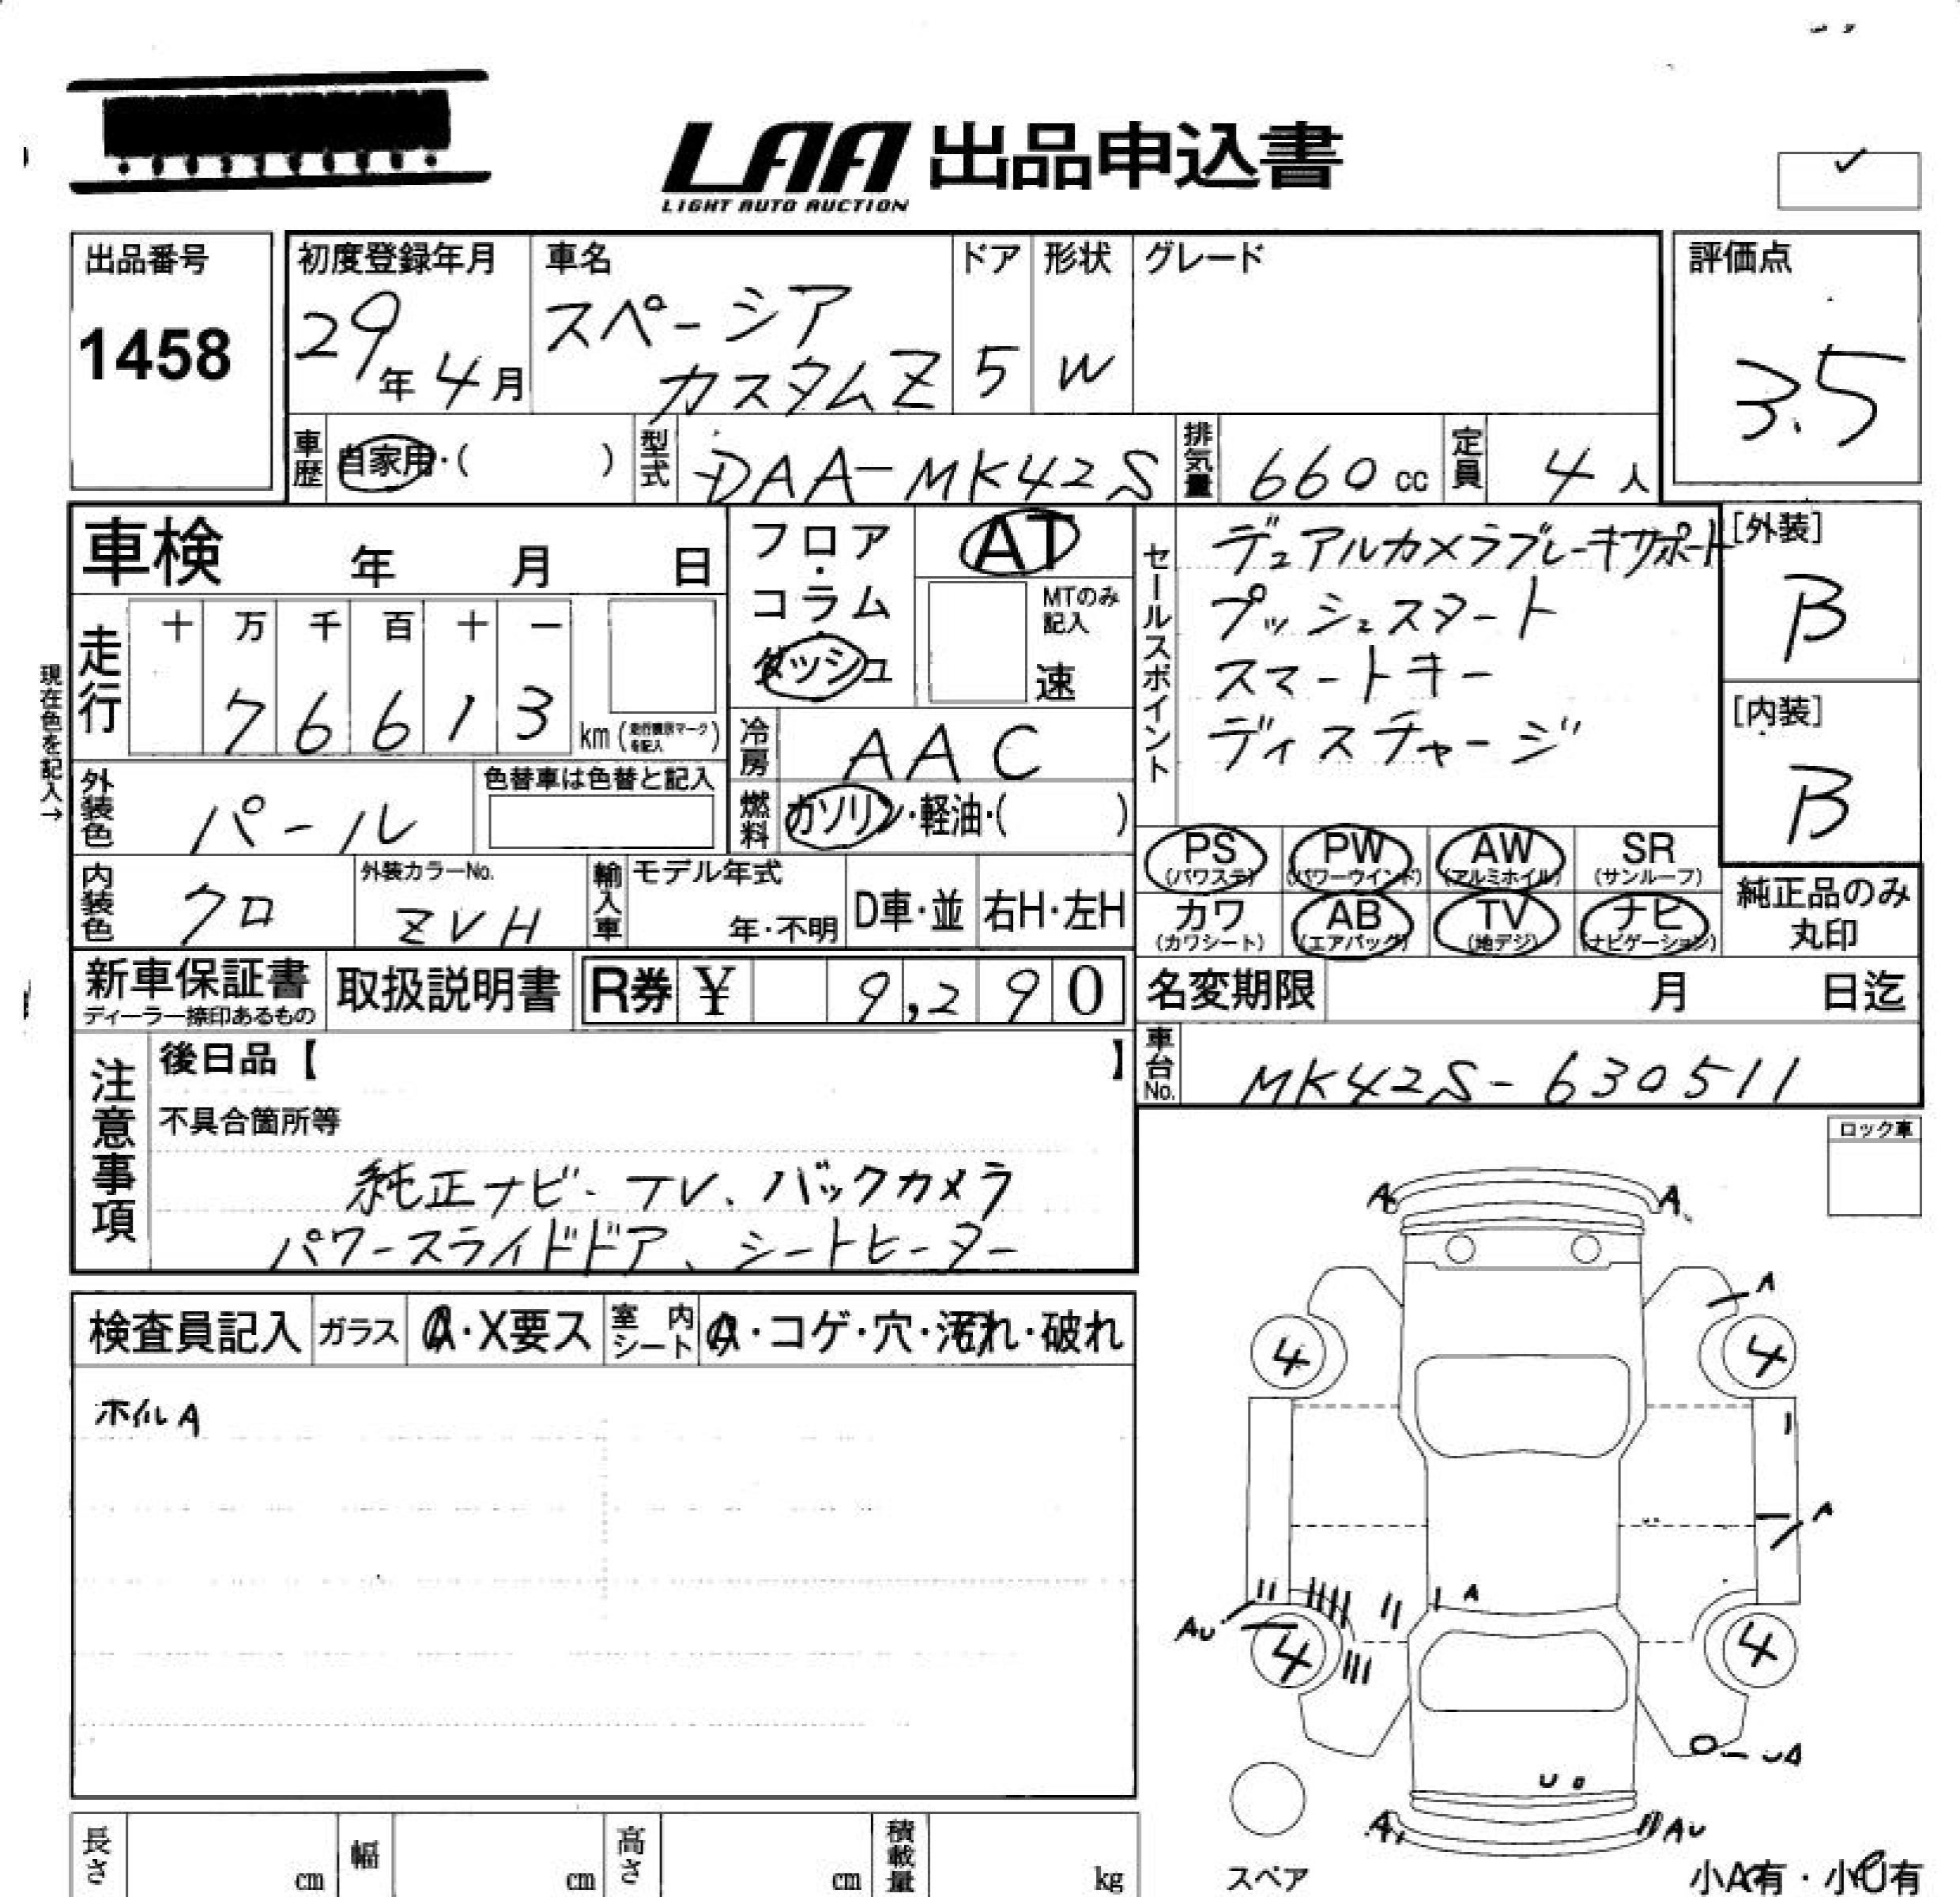 LAA 出品申込書
LIGHT AUTO AUCTION
出品番号
1458
初度登録年月
29年4月
車名
スペーシア
カスタムZ
ドア
5
形状
W
グレード
評価点
3.5
車歴
自家用・( )
型式
DAA-MK42S
排気量
660 cc
定員
4 人
車検 年 月 日
フロア・コラム・ダッシュ
AT
MTのみ記入
速
セールスポイント
デュアルカメラブレーキサポート
プッシュスタート
スマートキー
ディスチャージ
[外装]
B
[内装]
B
現在色を記入→
走行
十 万 千 百 十 一
7 6 6 1 3
km
冷房
AAC
外装色
パール
色替車は色替と記入
燃料
ガソリン・軽油・( )
PS (パワステ)
PW (パワーウインド)
AW (アルミホイル)
SR (サンルーフ)
カワ (カワシート)
AB (エアバッグ)
TV (地デジ)
ナビ (ナビゲーション)
純正品のみ
丸印
内装色
クロ
外装カラーNo.
ZVH
輸入車
モデル年式
年・不明
D車・並
右H・左H
新車保証書
ディーラー捺印あるもの
取扱説明書
R券 ¥ 9,290
名変期限 月 日迄
車台No.
MK42S-630511
注意事項
後日品【 】
不具合箇所等
純正ナビ、TV、バックカメラ
パワースライドドア、シートヒーター
ロック車
検査員記入
ガラス
A・X要ス
室内シート
A・コゲ・穴・汚れ・破れ
ホイルA
A A
A
4 4
A
A
AU
4 4
A AU
スペア
小A有・小U有
長さ cm
幅 cm
高さ cm
積載量 kg